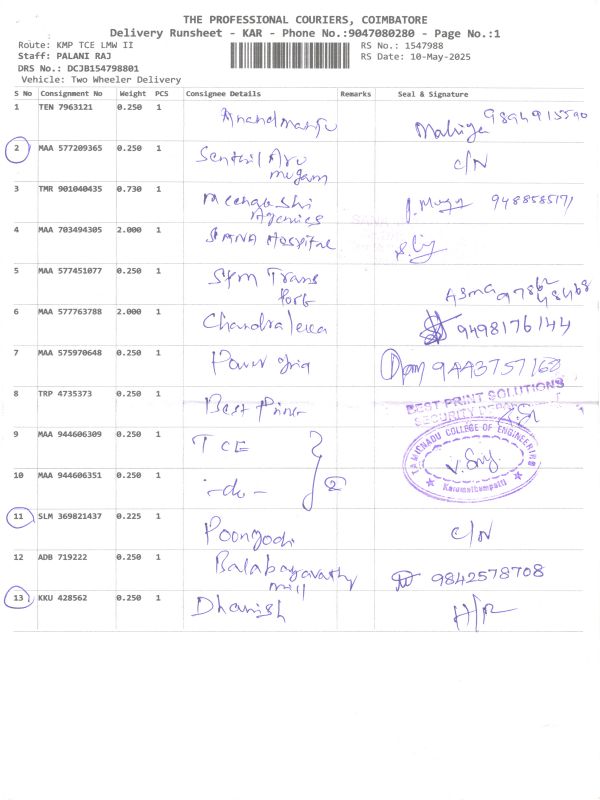 THE PROFESSIONAL COURIERS, COIMBATORE
Delivery Runsheet - KAR - Phone No.:9047080280 - Page No.:1
Route: KMP TCE LMW II
RS No.: 1547988
Staff: PALANI RAJ
RS Date: 10-May-2025
DRS No.: DCJB154798801
Vehicle: Two Wheeler Delivery
S No Consignment No Weight PCS Consignee Details Remarks Seal & Signature
1 TEN 7963121 0.250 1 9894915590
2 MAA 577209365 0.250 1 Senthil Aru C/N
mugam
3 TMR 901040435 0.730 1 Meenakshi 9488585171
Agencies
4 MAA 703494305 2.000 1 SANA Hospital
5 MAA 577451077 0.250 1 Sfm Trans Asma
Port
6 MAA 577763788 2.000 1 Chandraleka 9498176144
7 MAA 575970648 0.250 1 Power
8 TRP 4735373 0.250 1 Best Print BEST PRINT SOLUTIONS
SECURITY
9 MAA 944606309 0.250 1 TCE TAMILNADU COLLEGE OF ENGINEERING
10 MAA 944606351 0.250 1 -do- 2 Karumathampatti
11 SLM 369821437 0.225 1 Poongodi C/N
12 ADB 719222 0.250 1 Balabagavathy 9842578708
mill
13 KKU 428562 0.250 1 Dhanish H/R